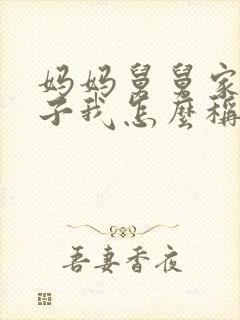 妈妈舅舅家
子我怎麼稱
吾妻香夜